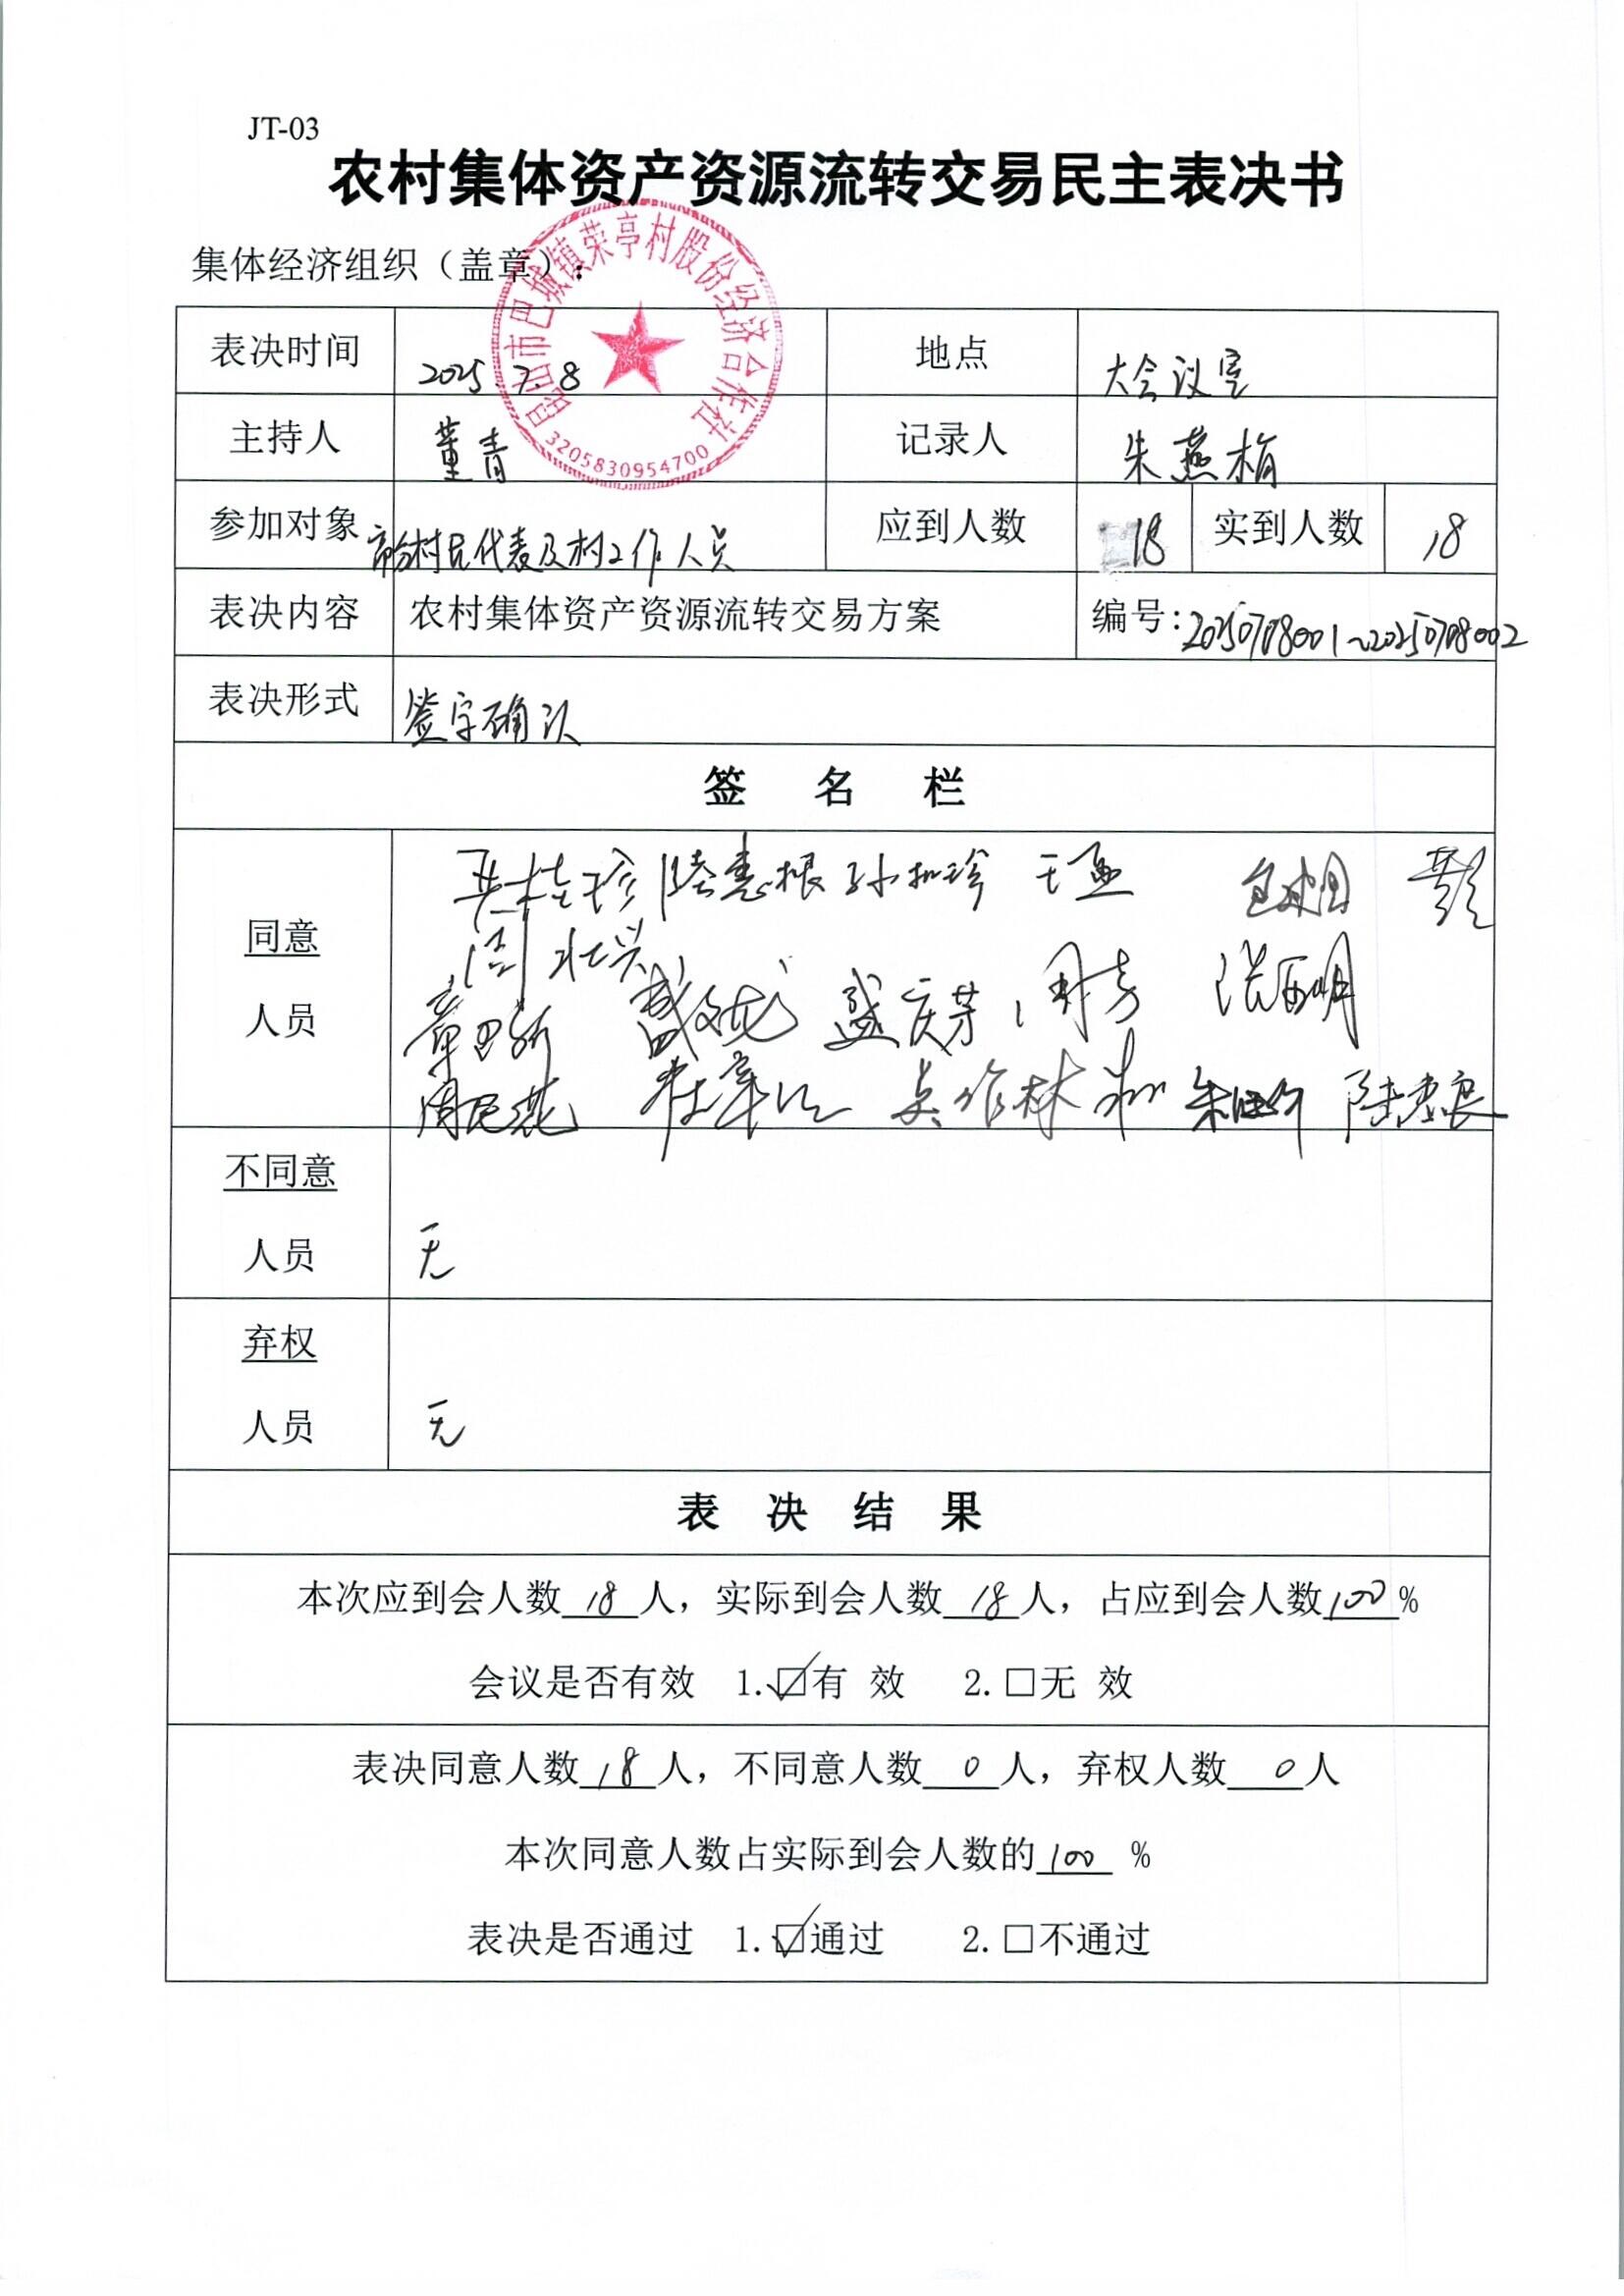 JT-03
农村集体资产资源流转交易民主表决书
集体经济组织（盖章）：
昆山市巴城镇荣亭村股份经济合作社
3205830954700
表决时间 2025.7.8 地点 大会议室
主持人 董青 记录人 朱燕梅
参加对象 村民代表及村工作人员 应到人数 18 实到人数 18
表决内容 农村集体资产资源流转交易方案 编号：20250708001~20250708002
表决形式 签字确认
签 名 栏
同意
人员
陆惠根
周壮兴
盛庆芳
吴作林 陆惠良
不同意
人员
无
弃权
人员
无
表 决 结 果
本次应到会人数 18 人，实际到会人数 18 人，占应到会人数100%
会议是否有效 1.☑有 效 2.□无 效
表决同意人数 18 人，不同意人数 0 人，弃权人数 0 人
本次同意人数占实际到会人数的 100 %
表决是否通过 1.☑通过 2.□不通过